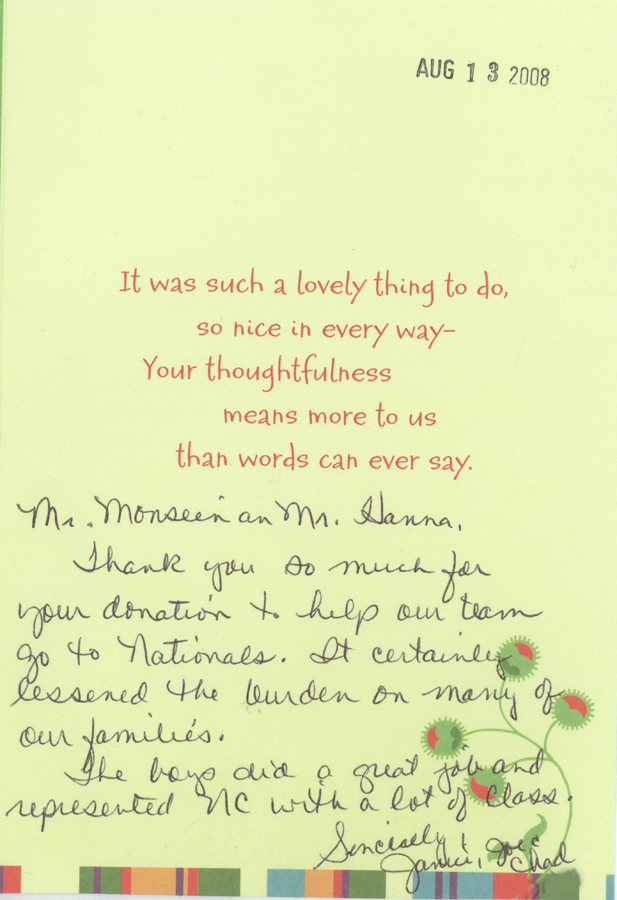 AUG 13 2008
It was such a lovely thing to do,
so nice in every way–
Your thoughtfulness
means more to us
than words can ever say.
Mr. Monseein an Mr. Hanna,
Thank you so much for
your donation to help our team
go to Nationals. It certainly
lessened the burden on many of
our families.
The boys did a great job and
represented NC with a lot of class.
Sincerely,
Chad